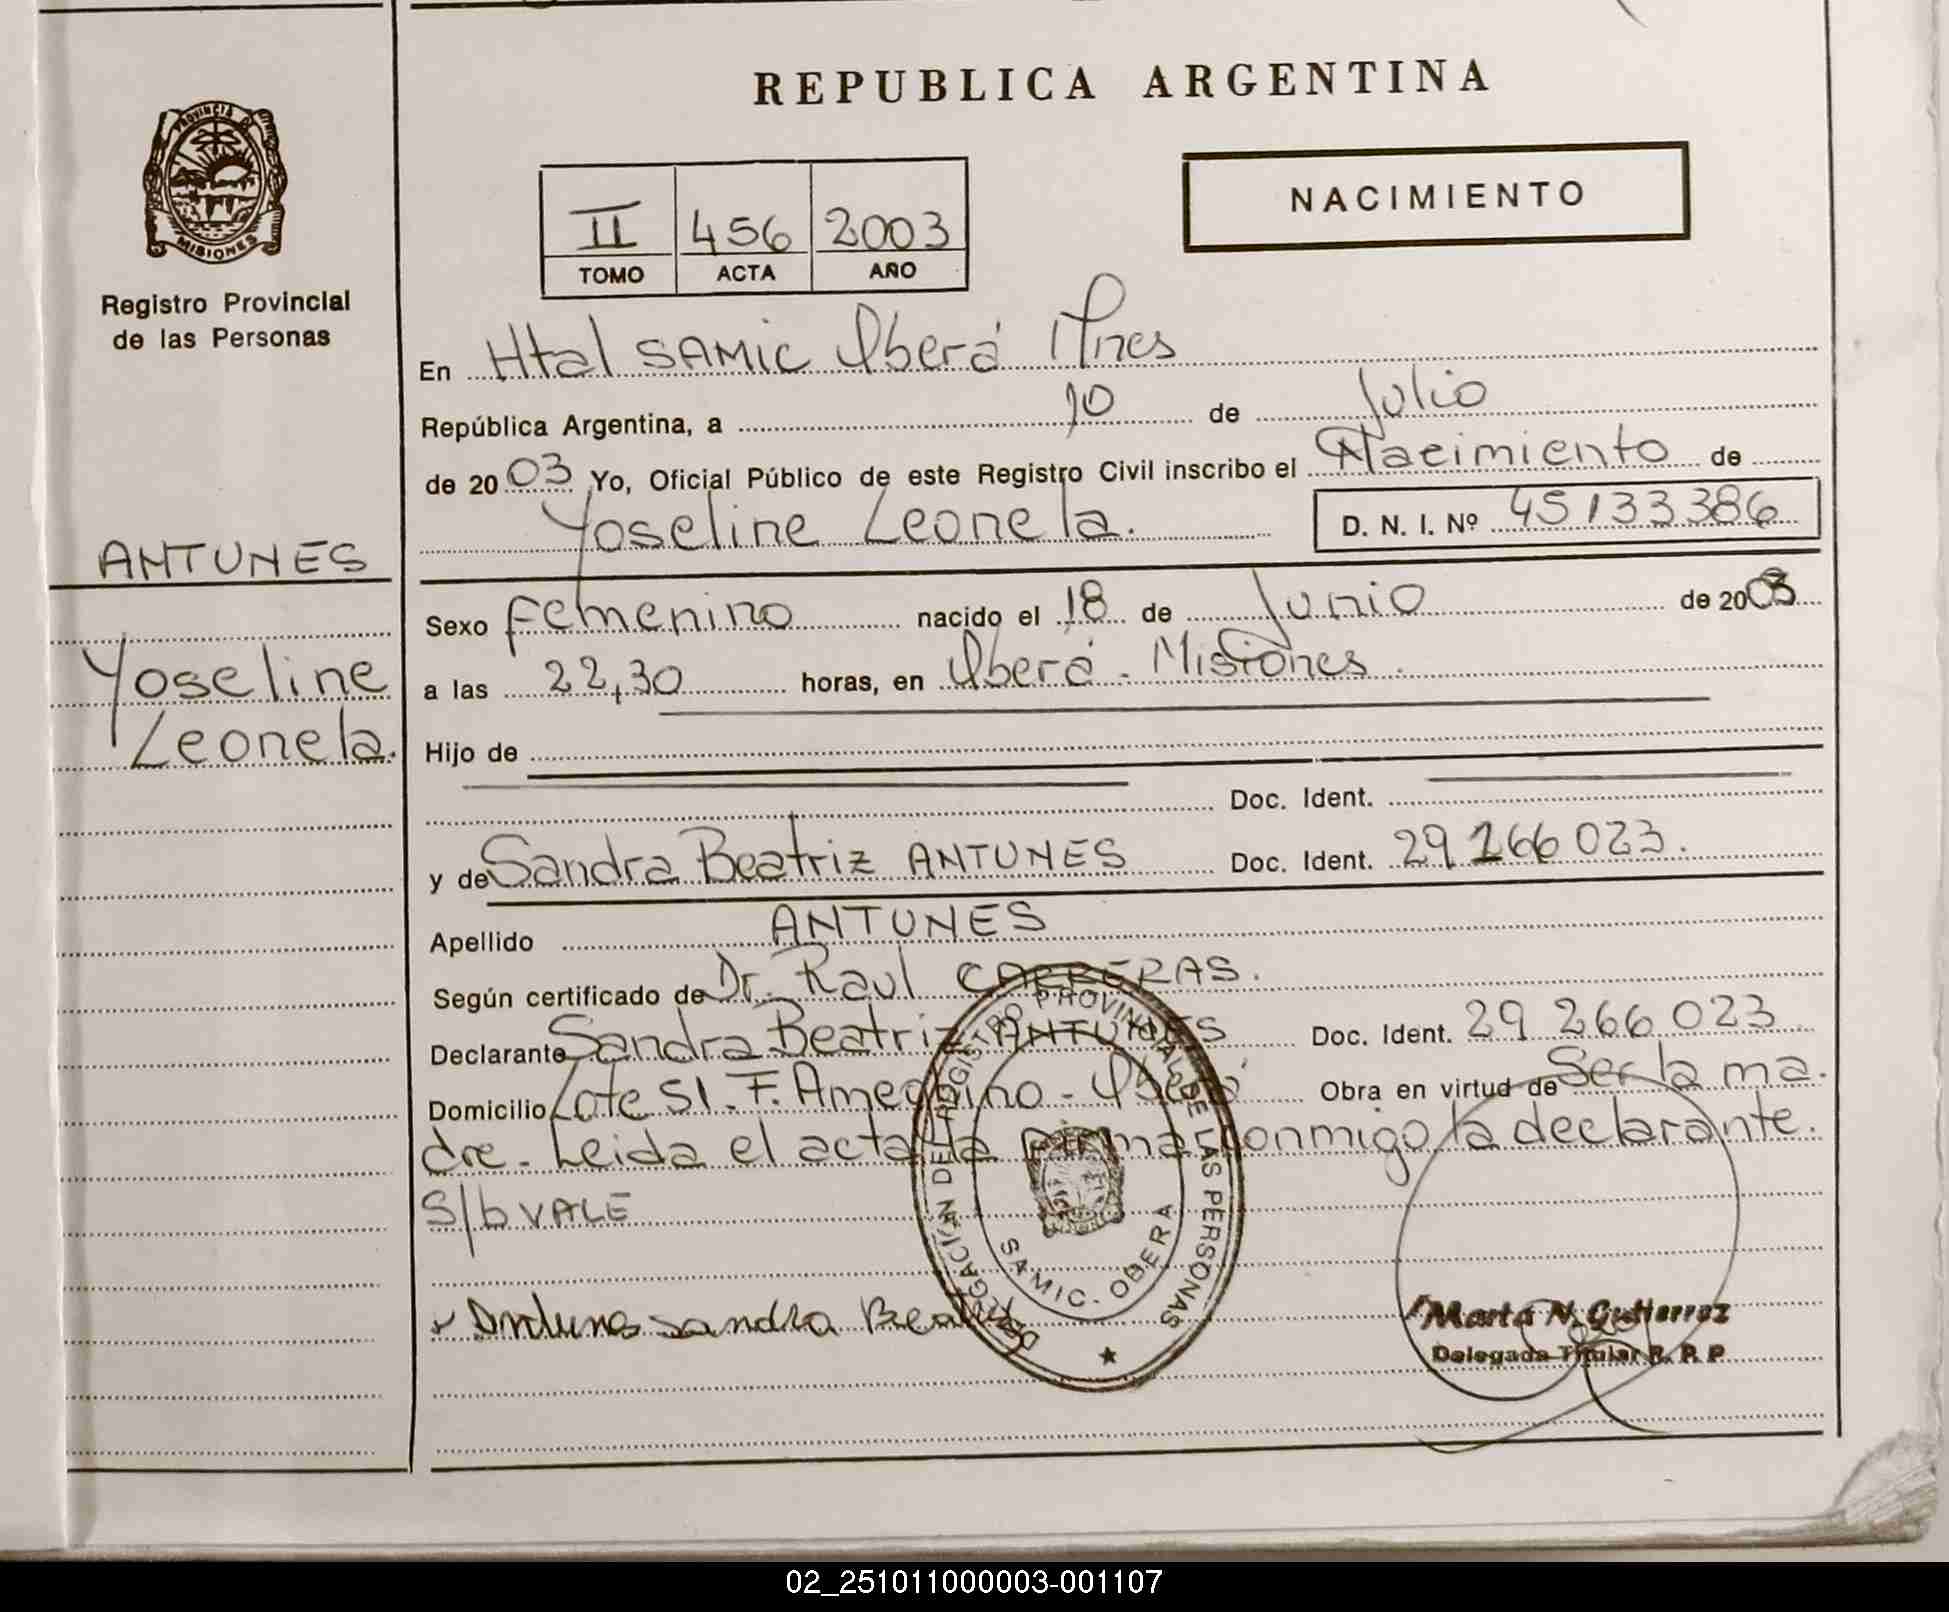 REPUBLICA ARGENTINA
PROVINCIA DE
MISIONES
Registro Provincial
de las Personas
II 456 2003
TOMO ACTA AÑO
NACIMIENTO
En Htal SAMIC Oberá Mnes
República Argentina, a 10 de Julio
de 2003 Yo, Oficial Público de este Registro Civil inscribo el Nacimiento de
Yoseline Leonela. D. N. I. Nº 45133386
ANTUNES
Yoseline
Leonela.
Sexo Femenino nacido el 18 de Junio de 2003
a las 22,30 horas, en Oberá - Misiones.
Hijo de
Doc. Ident.
y de Sandra Beatriz ANTUNES Doc. Ident. 29 266 023.
Apellido ANTUNES
Según certificado de Dr. Raul CARRERAS.
Declarante Sandra Beatriz ANTUNES Doc. Ident. 29 266 023
Domicilio Lote 51. F. Ameghino - Oberá Obra en virtud de Ser la ma.
dre. Leida el acta la firma conmigo la declarante.
S/b VALE
Antunes Sandra Beatriz
DELEGACIÓN DEL REGISTRO PROVINCIAL DE LAS PERSONAS
SAMIC - OBERA
Marta N. Gutierrez
Delegada Titular R. P. P
02_251011000003-001107